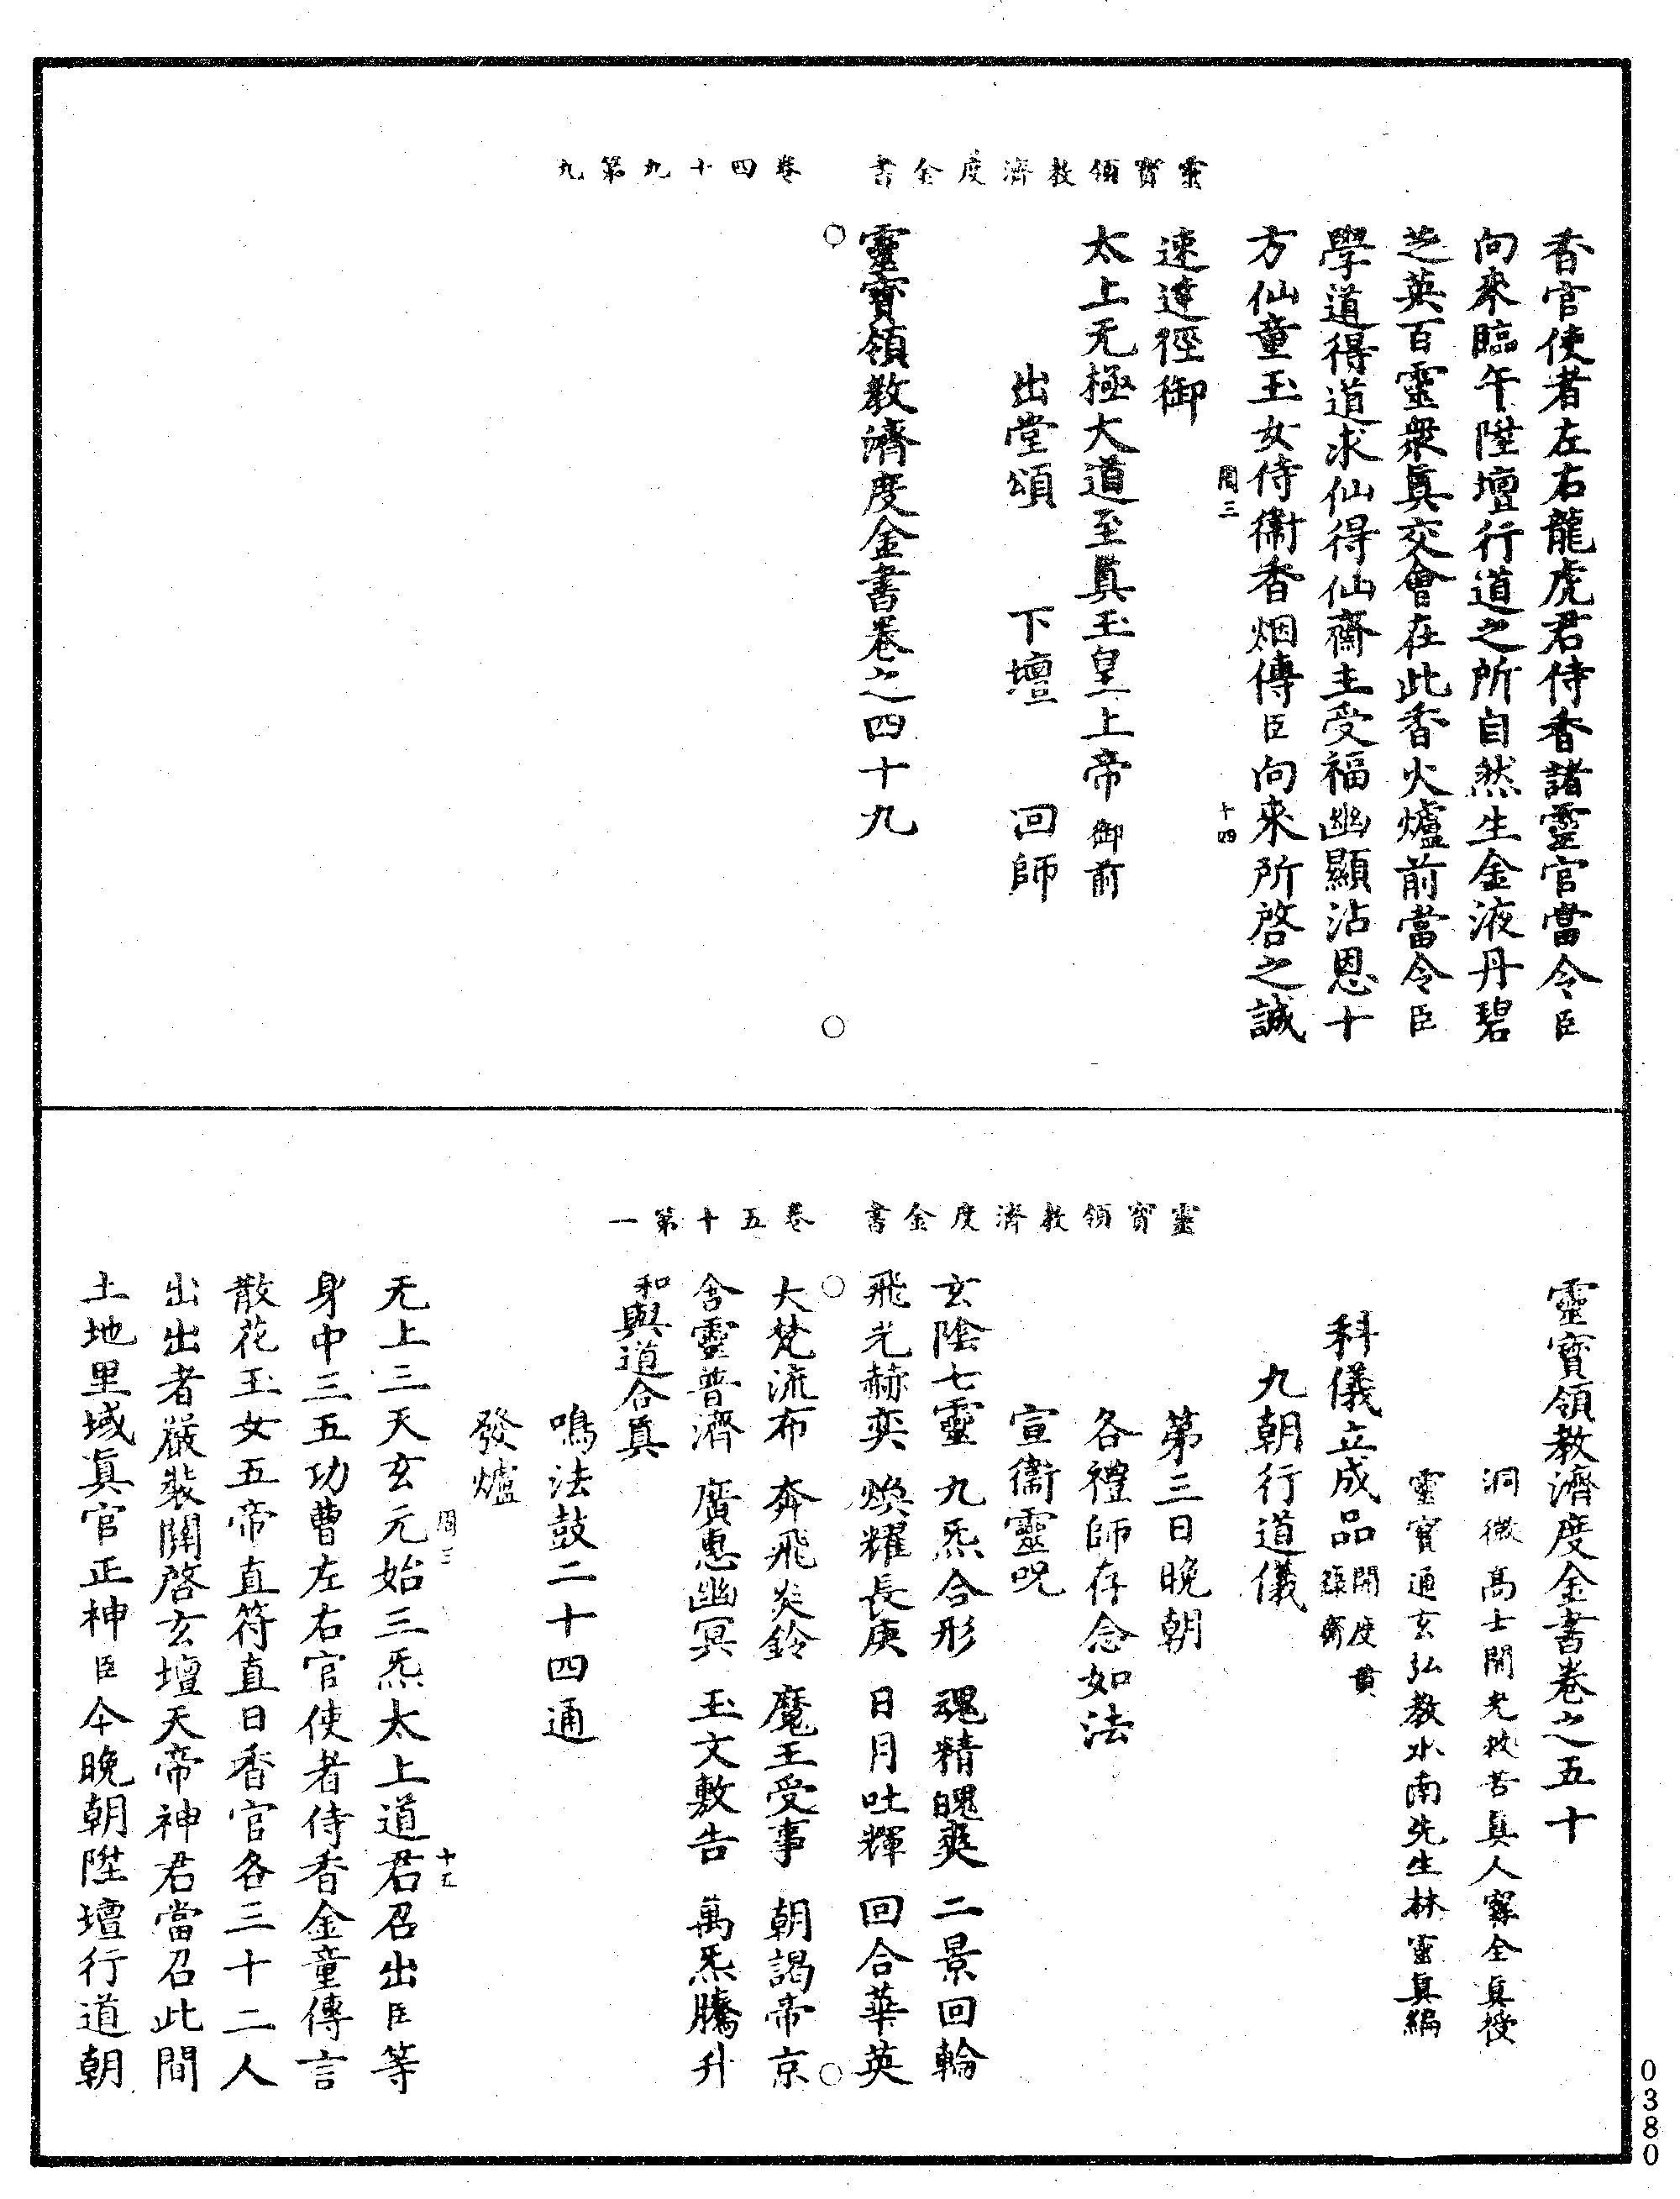 靈寶領教濟度金書　卷四十九第九
香官使者左右龍虎君侍香諸靈官當令臣
向來臨午陞壇行道之所自然生金液丹碧
芝英百靈衆眞交會在此香火爐前當令臣
學道得道求仙得仙齋主受福幽顯沾恩十
方仙童玉女侍衞香烟傳臣向來所啓之誠
周三　十四
速達徑御
太上无極大道至眞玉皇上帝御前
出堂頌　下壇　回師
靈寶領教濟度金書卷之四十九
靈寶領教濟度金書　卷五十第一
靈寶領教濟度金書卷之五十
洞微高士開光救苦眞人甯全眞授
靈寶通玄弘教水南先生林靈眞編
科儀立成品開度黃籙齋
九朝行道儀
第三日晚朝
各禮師存念如法
宣衞靈呪
玄陰七靈　九炁合形　魂精魄爽　二景回輪
飛光赫奕　煥耀長庚　日月吐輝　回合華英
大梵流布　奔飛炎鈴　魔王受事　朝謁帝京
含靈普濟　廣惠幽冥　玉文敷告　萬炁騰升
和與道合眞
鳴法鼓二十四通
發爐
周三　十五
无上三天玄元始三炁太上道君召出臣等
身中三五功曹左右官使者侍香金童傳言
散花玉女五帝直符直日香官各三十二人
出出者嚴裝關啓玄壇天帝神君當召此間
土地里域眞官正神臣今晚朝陞壇行道朝
0380